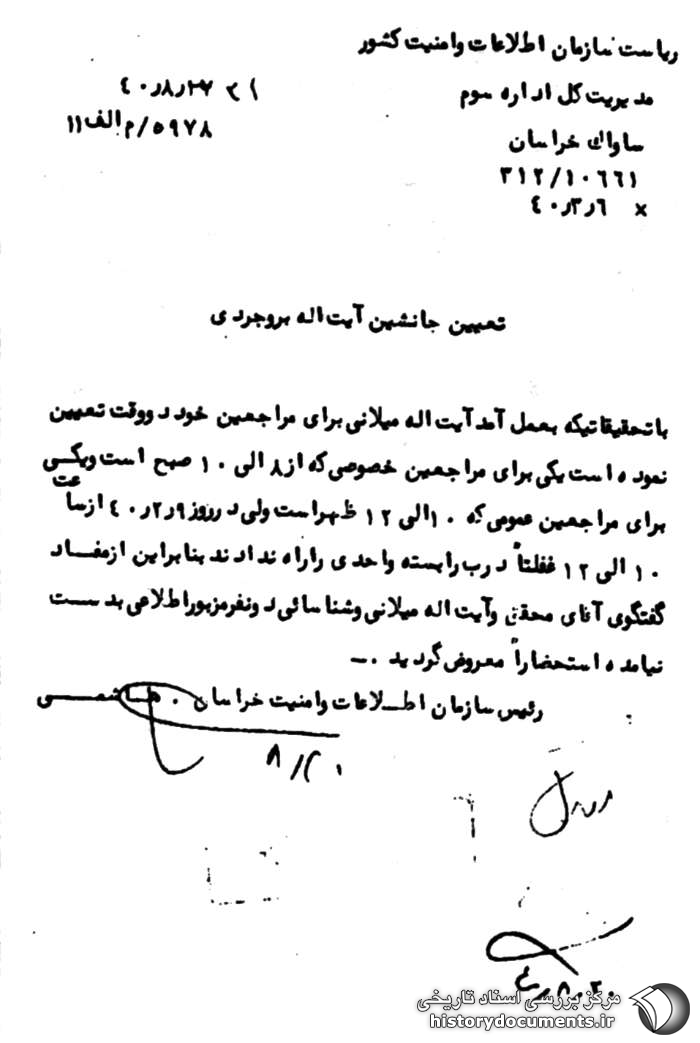 ریاست سازمان اطلاعات وامنیت کشور
مدیریت کل اداره سوم
۴۰٫۸٫۲۷
ساواک خراسان
۵۹۷۸/م الف ۱۱
۳۱۲/۱۰۶۶۱
× ۴۰٫۳٫۶
تعیین جانشین آیت اله بروجردی
باتحقیقاتیکه بعمل آمد آیت اله میلانی برای مراجعین خود دووقت تعیین
نموده است یکی برای مراجعین خصوصی که از ۸ الی ۱۰ صبح است ویکی
برای مراجعین عمومی که ۱۰ الی ۱۲ ظهراست ولی درروز ۴۰٫۲٫۹ ازساعت
۱۰ الی ۱۲ غفلتاً درب رابسته واحدی راراه ندادند بنابراین ازمفاد
گفتگوی آقای محقق وآیت اله میلانی وشناسائی دونفرمزبوراطلاعی بدست
نیامده استحضاراً معروض گردید .ــ
رئیس سازمان اطلاعات وامنیت خراسان . هاشمی
۸/۲۰
مرکز بررسی اسناد تاریخی
historydocuments.ir